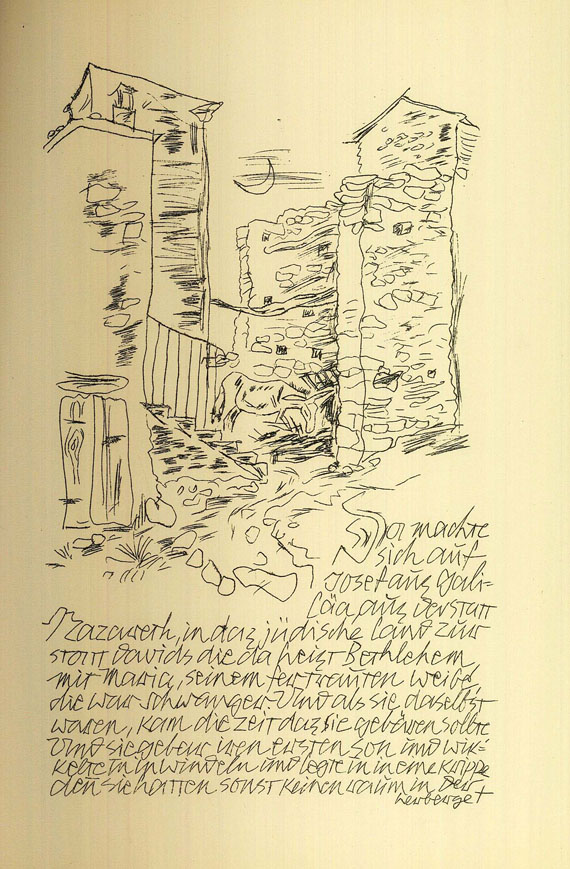 Do machte
sich auf
Josef aus Gali=
läa aus der statt
Nazareth, in das jüdische Land zur
statt Davids die da heist Bethlehem
mit Maria, seinem fertrauten weibe,
die war schwanger. Und als sie daselbst
waren, kam die zeit das sie gebären solte
Und sie gebeur iren ersten son und wik=
kelte in in windeln und legte in in eine krippe
den sie hatten sonst keinen raum in der
herberge +